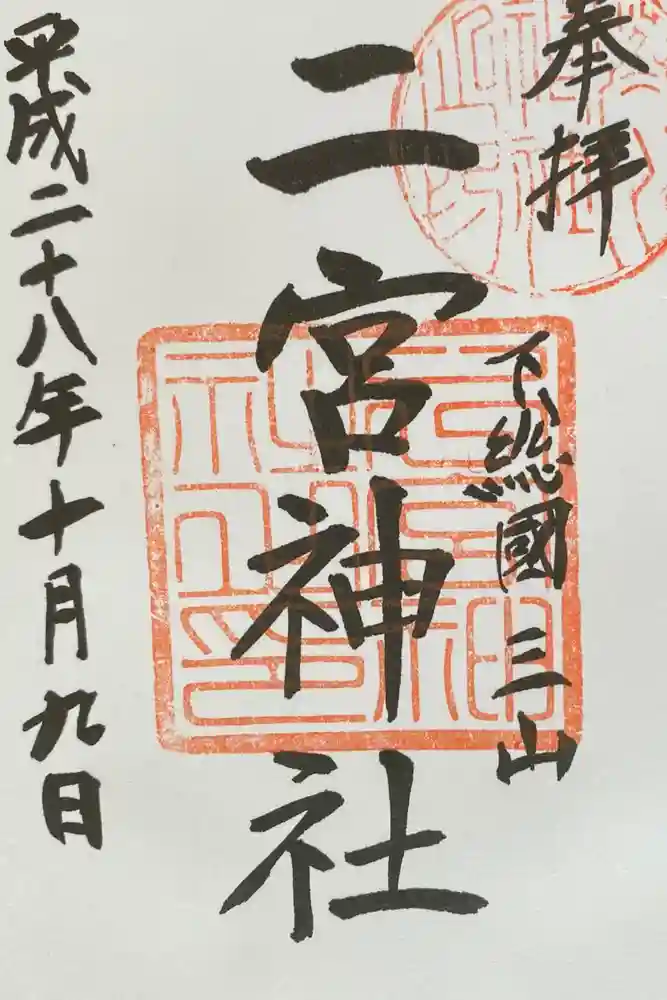 奉拝
下総國 三山
二宮神社
平成二十八年十月九日